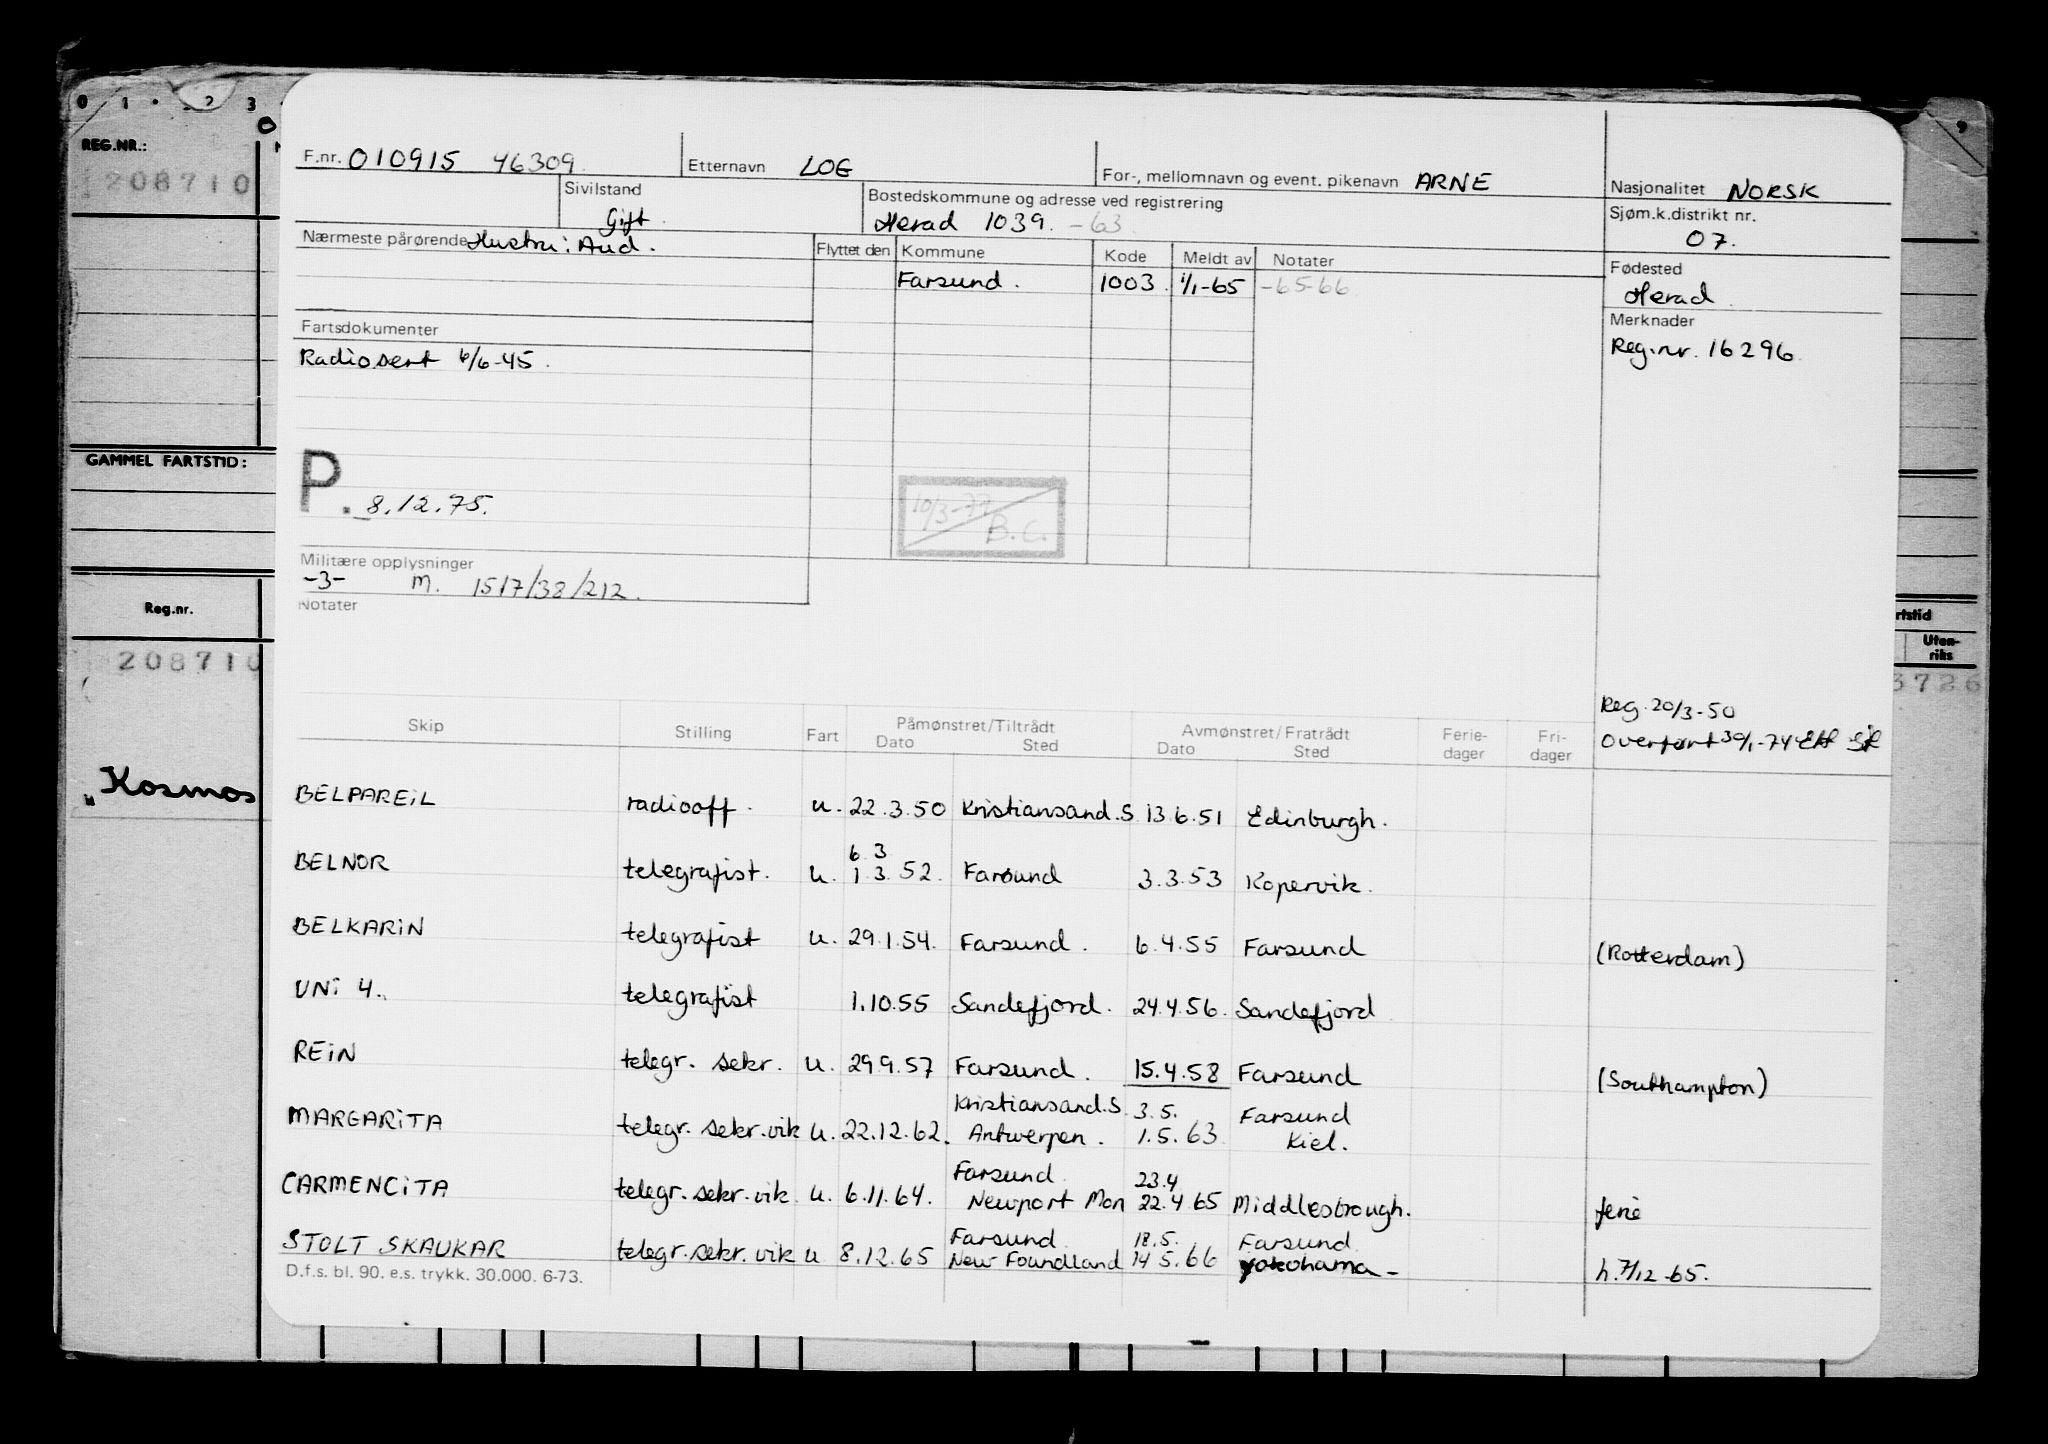 0 1 2 3
REG.NR.:
208710
GAMMEL FARTSTID:
Reg.nr.
208710
„Kosmos
9
rtstid
Uten-
riks
3726
F.nr. 010915 46309.
Etternavn LOG
For-, mellomnavn og event. pikenavn ARNE
Nasjonalitet NORSK
Sivilstand
Gift.
Bostedskommune og adresse ved registrering
Herad 1039. -63.
Sjøm.k.distrikt nr.
07.
Nærmeste pårørende Hustru: Aud.
Flyttet den Kommune Kode Meldt av Notater
Farsund. 1003. 1/1-65 -65-66
Fødested
Herad
Merknader
Reg.nr. 16296.
Fartsdokumenter
Radiosert 6/6-45.
P. 8.12.75.
10/3-77
B.C.
Militære opplysninger
-3- M. 1517/38/212.
Notater
Reg. 20/3-50
Overført 30/1-74
Skip Stilling Fart Påmønstret/Tiltrådt Avmønstret/Fratrådt Ferie- Fri-
Dato Sted Dato Sted dager dager
BELPAREIL radiooff. u. 22.3.50 Kristiansand.S 13.6.51 Edinburgh.
6 3
BELNOR telegrafist. u. 1.3.52. Farsund 3.3.53 Kopervik.
BELKARIN telegrafist u. 29.1.54. Farsund. 6.4.55 Farsund (Rotterdam)
UNI 4. telegrafist 1.10.55 Sandefjord. 24.4.56. Sandefjord
REIN telegr. sekr. u. 29.9.57 Farsund. 15.4.58 Farsund (Southampton)
Kristiansand.S 3.5. Farsund
MARGARITA telegr. sekr. vik u. 22.12.62. Antwerpen. 1.5.63 Kiel.
Farsund 23.4
CARMENCITA telegr. sekr. vik u. 6.11.64. Newport Mon 22.4 65 Middlesbrough. ferie
Farsund 18.5. Farsund
STOLT SKAUKAR telegr. sekr. vik u 8.12.65 New Foundland 14 5.66 Yokohama - h. 7/12-65.
D.f.s. bl. 90. e.s. trykk. 30.000. 6-73.